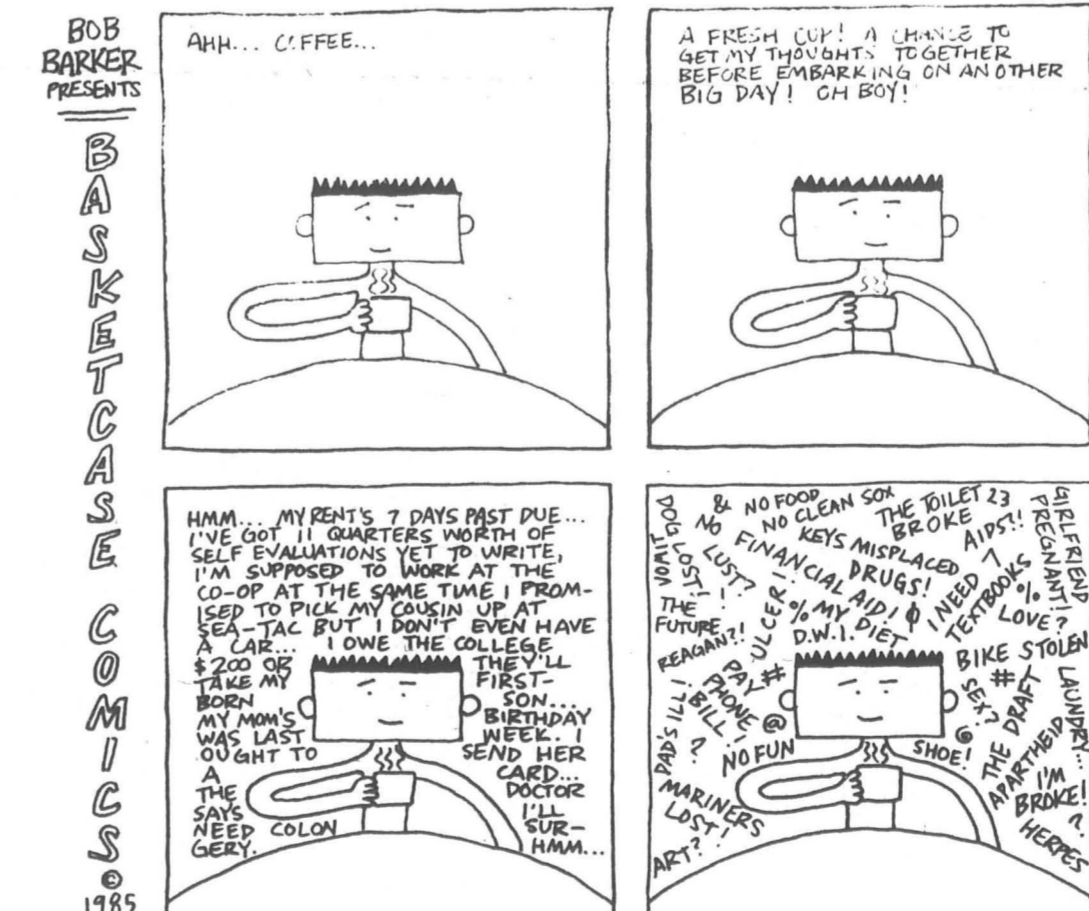 BOB
BARKER
PRESENTS
BASKETCASE COMICS ©
1985
AHH... COFFEE...
A FRESH CUP! A CHANCE TO
GET MY THOUGHTS TOGETHER
BEFORE EMBARKING ON ANOTHER
BIG DAY! OH BOY!
HMM... MY RENT'S 7 DAYS PAST DUE...
I'VE GOT 11 QUARTERS WORTH OF
SELF EVALUATIONS YET TO WRITE,
I'M SUPPOSED TO WORK AT THE
CO-OP AT THE SAME TIME I PROM-
ISED TO PICK MY COUSIN UP AT
SEA-TAC BUT I DON'T EVEN HAVE
A CAR... I OWE THE COLLEGE
$200 OR THEY'LL
TAKE MY FIRST-
BORN SON...
MY MOM'S BIRTHDAY
WAS LAST WEEK. I
OUGHT TO SEND HER
A CARD...
THE DOCTOR
SAYS I'LL
NEED COLON SUR-
GERY. HMM...
DOG VOMIT
LOST!
& NO FOOD
NO CLEAN SOX
THE TOILET 23
BROKE
AIDS?!
GIRLFRIEND
PREGNANT!
NO LUST?
FINANCIAL AID!
KEYS MISPLACED
DRUGS!
I NEED 7
TEXTBOOKS
%
LOVE?
THE
FUTURE
!
REAGAN?!
ULCER!
% MY DIET
D.W.I.
BIKE STOLEN
#
PAY #
PHONE @
BILL!
DAD'S ILL!
?
NO FUN
SEX?
@
SHOE!
THE DRAFT
APARTHEID
LAUNDRY...
I'M
BROKE!
?
MARINERS
LOST!
ART?
HERPES